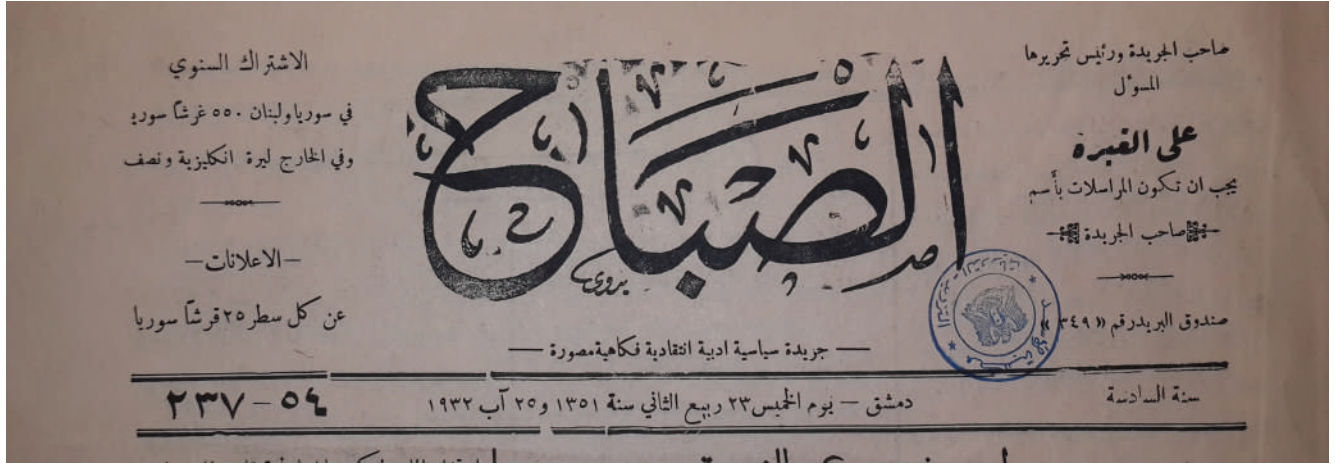 صاحب الجريدة ورئيس تحريرها
المسوٴل
على القبرة
يجب ان تكون المراسلات بأسم
صاحب الجريدة
صندوق البريد رقم «٣٤٩»
الصباح
بدوي
جريدة سياسية ادبية انتقادية فكاهية مصورة
الاشتراك السنوي
في سوريا ولبنان ٥٥٠ غرشاً سوريـ
وفي الخارج ليرة انكليزية ونصف
—الاعلانات—
عن كل سطر ٢٥ قرشاً سوريا
سنة السادسة
دمشق — يوم الخميس ٢٣ ربيع الثاني سنة ١٣٥١ و ٢٥ آب ١٩٣٢
٥٤–٢٣٧